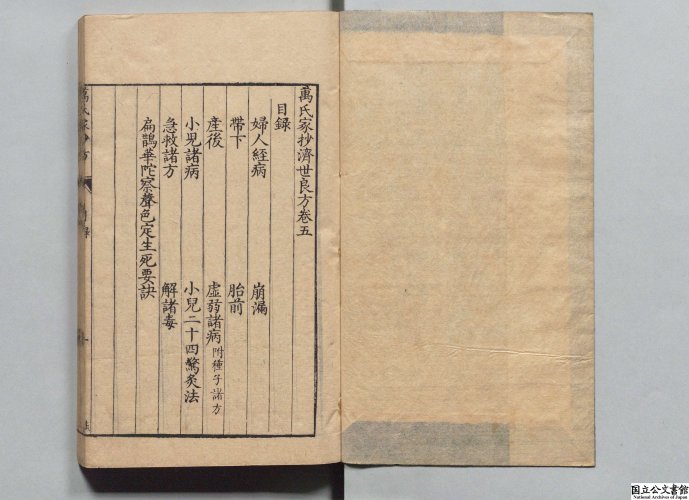 萬氏家抄濟世良方卷五
目録
婦人経病 崩漏
帶下 胎前
產後 虛弱諸病 附種子諸方
小児諸病 小兒二十四驚灸法
急救諸方 解諸毒
扁鵲華陀察聲色定生死要訣
萬氏家抄方
国立公文書館
National Archives of Japan